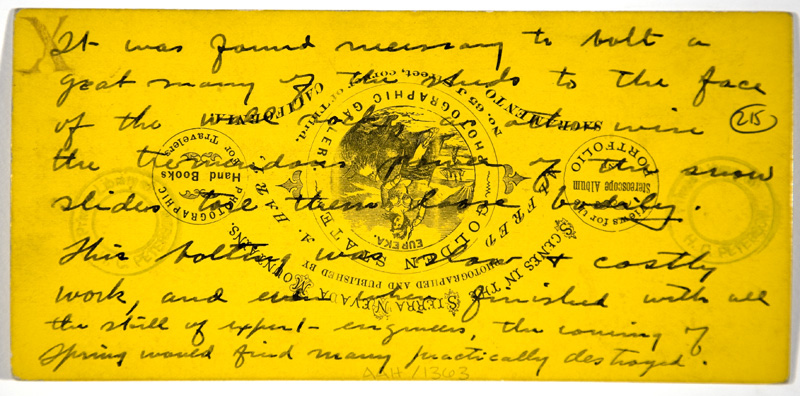 It was found necessary to bolt a
great many of the sheds to the face
of the wall rocks, as otherwise
the tremendous power of the snow
slides tore them loose bodily.
This bolting was slow & costly
work, and even when finished with all
the skill of expert engineers, the coming of
Spring would find many practically destroyed.
215
X
AAH/1363
SCENES IN THE
SIERRA NEVADA MOUNTAINS,
PHOTOGRAPHED AND PUBLISHED BY
ALFRED A. HART,
GOLDEN STATE
PHOTOGRAPHIC GALLERY
No. 65 J Street, cor. of Third,
SACRAMENTO, CALIFORNIA
EUREKA.
PHOTOGRAPHIC
Hand Books
For Travelers
Views for
PORTFOLIO
Stereoscope Album